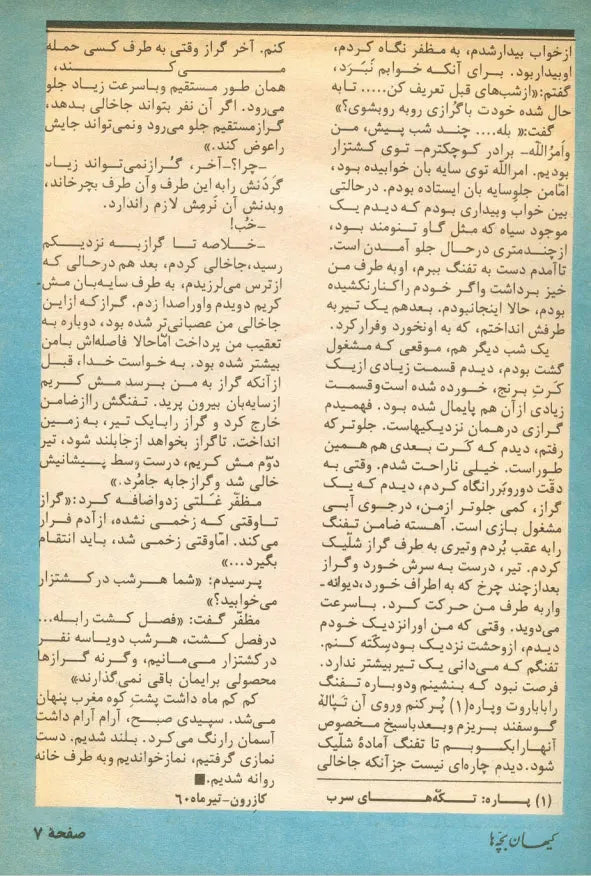 ازخواب بیدارشدم، به مظفر نگاه کردم،
اوبیداربود. برای آنکه خوابم نَبَرَد،
گفتم:«ازشب‌های قبل تعریف کن..... تابه
حال شده خودت باگُرازی روبه روبشوی؟»
گفت:« بله.... چند شب پیش، من
وامرُاللّه- برادر کوچکترم- توی کشتزار
بودیم. امراللّه توی سایه بان خوابیده بود،
امّامن جلوسایه بان ایستاده بودم. درحالتی
بین خواب وبیداری بودم که دیدم یک
موجود سیاه که مثل گاو تنومند بود،
ازچندمتری درحال جلو آمدن است.
تاآمدم دست به تفنگ ببرم، اوبه طرف من
خیز برداشت واگر خودم راکنارنکشیده
بودم، حالا اینجانبودم. بعدهم یک تیربه
طرفش انداختم، که به اونخورد وفرارکرد.
یک شب دیگر هم، موقعی که مشغول
گشت بودم، دیدم قسمت زیادی ازیک
کَرتِ برنج، خورده شده است‌وقسمت
زیادی ازآن هم پایمال شده بود. فهمیدم
گرازی درهمان نزدیکیهاست. جلوترکه
رفتم، دیدم که کَرت بعدی هم همین
طوراست. خیلی ناراحت شدم. وقتی به
دقّت دوروبَررانگاه کردم، دیدم که یک
گراز، کمی جلوتر ازمن، درجوی آبی
مشغول بازی است. آهسته ضامن تفنگ
رابه عقب بُردم وتیری به طرف گراز شلّیک
کردم. تیر، درست به سرش خورد وگراز
بعدازچند چرخ که به اطراف خورد،دیوانه-
واربه طرف من حرکت کرد. باسرعت
می‌دوید. وقتی که من اورانزدیک خودم
دیدم، ازوحشت نزدیک بودسِکته کنم.
تفنگم که می‌دانی یک تیربیشتر ندارد.
فرصت نبود که بنشینم ودوباره تفنگ
راباباروت وپاره(۱) پُرکنم وروی آن تَپالهٔ
گوسفند بریزم وبعدباسیخ مخصوص
آنهارابکوبم تا تفنگ آمادهٔ شلّیک
شود.دیدم چاره‌ای نیست جزآنکه جاخالی
(۱) پاره: تکّه‌های سرب
کنم. آخر گراز وقتی به طرف کسی حمله
می‌کند،
همان طور مستقیم وباسرعت زیاد جلو
می‌رود. اگر آن نفر بتواند جاخالی بدهد،
گرازمستقیم جلو می‌رود ونمی‌تواند جایش
راعوض کند.»
-چرا؟-آخر، گُرازنمی‌تواند زیاد
گَردَنش رابه این طرف وآن طرف بچرخاند،
وبدنش آن نَرمِش لازم راندارد.
-خُب!
-خلاصه تا گرازبه نزدیکم
رسید،جاخالی کردم، بعد هم درحالی که
ازترس می‌لرزیدم، به طرف سایه‌بان مش
کریم دویدم واوراصدا زدم. گرازکه ازاین
جاخالی من عصبانی‌تر شده بود، دوباره به
تعقیب من پرداخت امّاحالا فاصله‌اش بامن
بیشتر شده بود. به خواست خدا، قبل
ازآنکه گراز به من برسد مش کریم
ازسایه‌بان بیرون پرید. تفنگش راازضامن
خارج کرد و گراز رابایک تیر، به زمین
انداخت. تاگراز بخواهد ازجابلند شود، تیر
دوّم مش کریم، درست وسط پیشانیش
خالی شد وگرازجابه جامُرد.»
مظفّر غَلتی زدواضافه کرد:«گراز
تاوقتی که زخمی نشده، ازآدم فرار
می‌کند. امّاوقتی زخمی شد، باید انتقام
بگیرد...»
پرسیدم: «شما هرشب درکشتزار
می‌خوابید؟»
مظفّر گفت: «فصل کشت رابله...
درفصل کشت، هرشب دویاسه نفر
درکشتزار می‌مانیم، وگرنه گرازها
محصولی برایمان باقی نمی‌گذارند»
کم کم ماه داشت پشتِ کوه مغرب پنهان
می‌شد. سپیدی صبح، آرام آرام داشت
آسمان رارنگ می‌کرد. بلند شدیم. دست
نمازی گرفتیم، نمازخواندیم وبه طرف خانه
روانه شدیم.■
کازرون-تیرماه۶۰
کیهان بچّه‌ها
صفحهٔ ۷